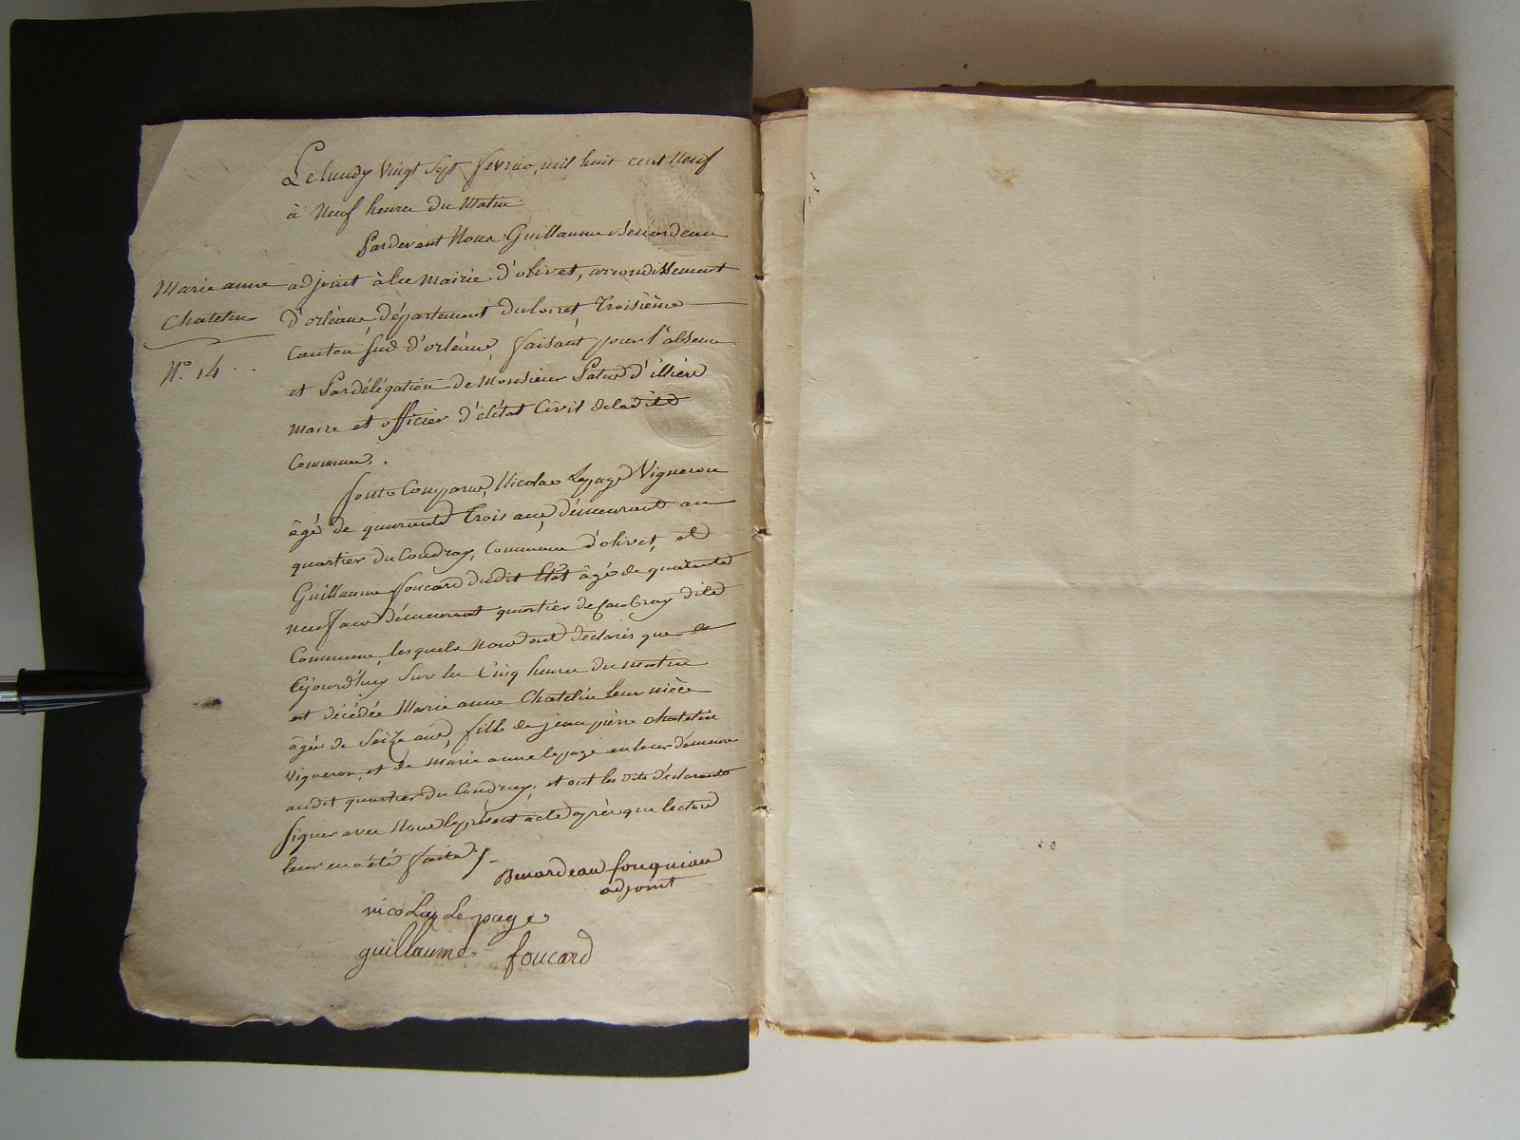 Marie anne
Chatelin
N.° 14
Le lundy vingt sept fevrier, mil huit cent Neuf
à Neuf heures du Matin
Pardevant Nous Guillaume
adjoint à la Mairie d'olivet, arrondissement
d'orléans département du loiret Troisième
Canton sud d'orléans, faisant pour l'absence
et Par délégation de Monsieur Patas d'illiers
Maire et officier d'élétat Civil de ladite
Commune.
Sonts Comparus, Nicolas Lepage Vigneron
âgé de quarante trois ans, démeurant au
quartier du Coudray, Commune d'olivet, et
Guillaume foucard dudit Etat âgé de quarante
neuf ans démeurant quartier de Caubray dite
Commune, lesquels nous ont déclarés que
cejourd'huy sur les Cinq heures du matin
est décédée Marie anne Chatelin leur nièce
âgée de Seize ans, fille de jean pierre chatelin
Vigneron, et de Marie anne lepage en leur démeure
audit quartier du Coudray, et ont les dits déclarants
signer avec Nous le présent acte après que lecture
leur en a été faite
Benardeau fouquiau
adjoint
nicolas Lepage
guillaume foucard